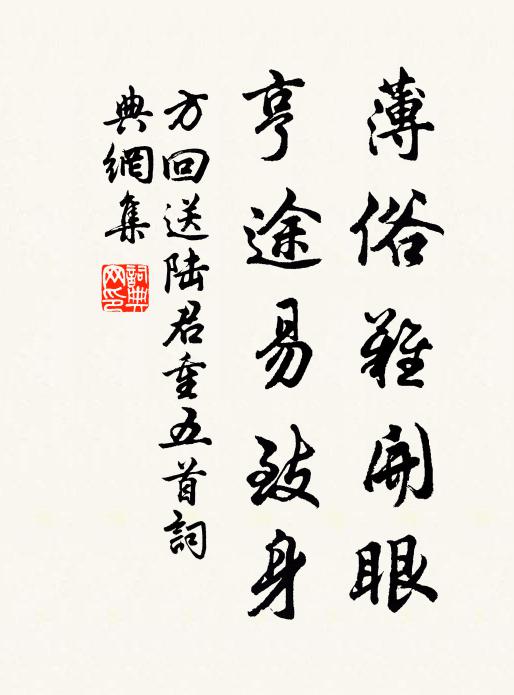 薄俗難開眼
亨途易致身
方回送陆君重五首詞
典網集
詞典
网印